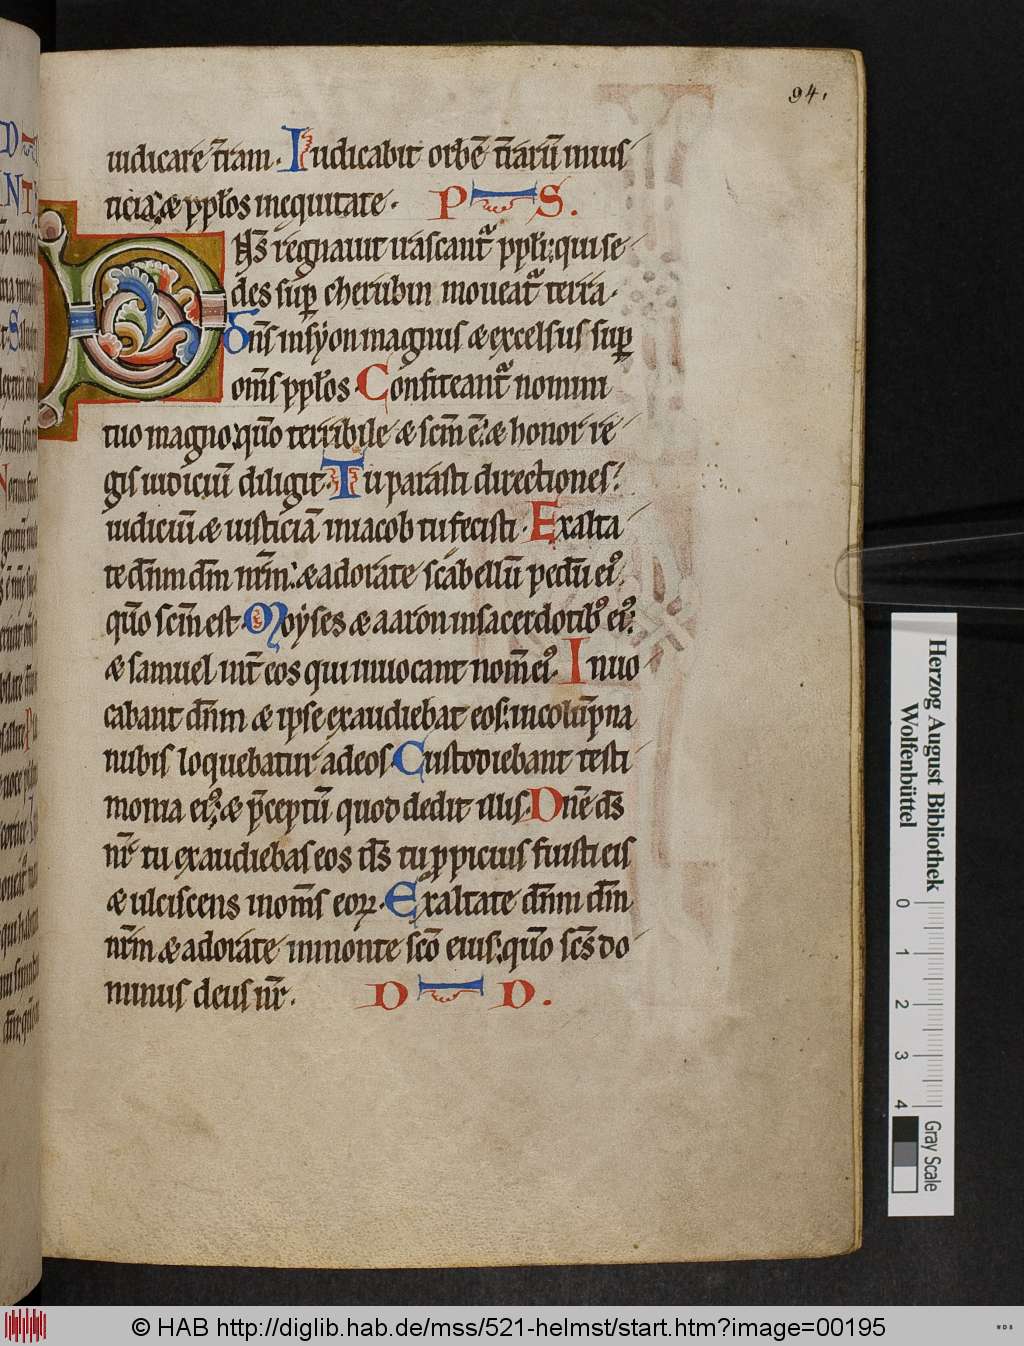 94.
iudicare t̄ram. Iudicabit orbē t̄rarū inius
ticia; æ pp̄los inequitate. P S.
DN̄S regnauit irascant᷑ pp̄li; qui se
des sup̱ cherubin moueat᷑ terra.
Dn̄s insyon magnus æ excelsus sup̱
om̄s pp̄los. Confiteant᷑ nomini
tuo magno; quō terribile æ sc̄m ē; æ honor re
gis iudiciū diligit. Tu parasti directiones;
iudiciū æ iusticiā iniacob tu fecisti. Exalta
te dn̄m dm̄ nr̄m; æ adorate scabellū pedū eiꝰ.
quō sc̄m est. Moyses æ aaron insacerdotibꝰ eiꝰ;
æ samuel int̄ eos qui inuocant nom̄ eiꝰ. Inuo
cabant dn̄m æ ipse exaudiebat eos; incolūpna
nubis loquebatur adeos. Custodiebant testi
monia eiꝰ; æ p̄ceptū quod dedit illis. Dn̄e ds̄
nr̄ tu exaudiebas eos ds̄ tu ꝓpicius fuisti eis
æ ulciscens inom̄s eoꝝ. Exaltate dn̄m dm̄
nr̄m æ adorate inmonte sc̄o eius; quō sc̄s do
minus deus nr̄. D D.
Herzog August Bibliothek
Wolfenbüttel
0 1 2 3 4
Gray Scale
© HAB http://diglib.hab.de/mss/521-helmst/start.htm?image=00195